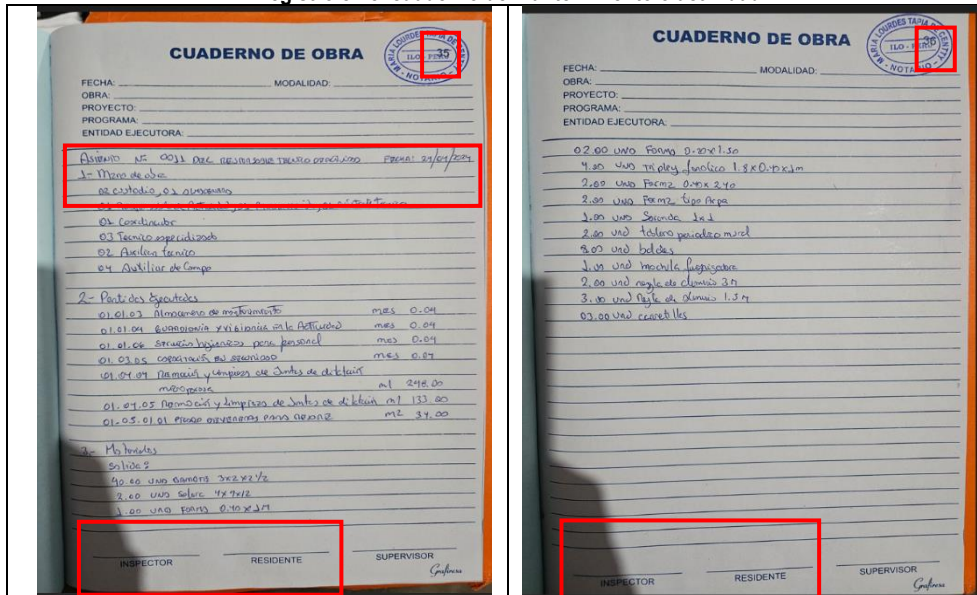 CUADERNO DE OBRA
MARIA LOURDES TAPIA DE CENTY
ILO - PERÚ
- NOTARIO -
35
FECHA: MODALIDAD:
OBRA:
PROYECTO:
PROGRAMA:
ENTIDAD EJECUTORA:
Asiento Nº 0011 DEL RESPONSABLE TECNICO FECHA:
1- Mano de obra
02 custodio, 01 almacenero
01 Coordinador
03 Tecnico especializado
02 Auxiliar tecnico
04 Auxiliar de Campo
2- Partidas Ejecutadas
01.01.03 Almacenero de mantenimiento mes 0.04
01.01.04 GUARDIANIA Y VIGILANCIA en la Actividad mes 0.04
01.01.06 Servicios higienicos para personal mes 0.04
01.03.05 CAPACITACIÓN EN SEGURIDAD mes 0.07
01.04.04 Remoción y Limpieza de Juntas de dilatación
ml 248.00
01.04.05 Remoción y Limpieza de Juntas de dilatación ml 133.00
01.05.01.01 m2 34.00
3- Materiales
40.00 UND 3x2x2 1/2
2.00 UND 4x4x12
1.00 UND FORMA 0.40 x 1M
INSPECTOR RESIDENTE SUPERVISOR
Grafinesa
CUADERNO DE OBRA
LOURDES TAPIA DE CENTY
MARIA
ILO - PERÚ
- NOTARIO -
36
FECHA: MODALIDAD:
OBRA:
PROYECTO:
PROGRAMA:
ENTIDAD EJECUTORA:
02.00 UND Forma 0.20x1.50
UND Triplay fenolico 1.8x0.40x1m
2.00 UND Forma 0.40x240
2.00 UND Forma tipo Arpa
1.00 UND 1x1
2.00 UND tablero periodico mural
8.00 und baldes
1.00 und mochila fumigadora
2.00 und regla de aluminio 3m
3.00 und Regla de aluminio 1.5m
03.00 und carretilles
INSPECTOR RESIDENTE SUPERVISOR
Grafinesa